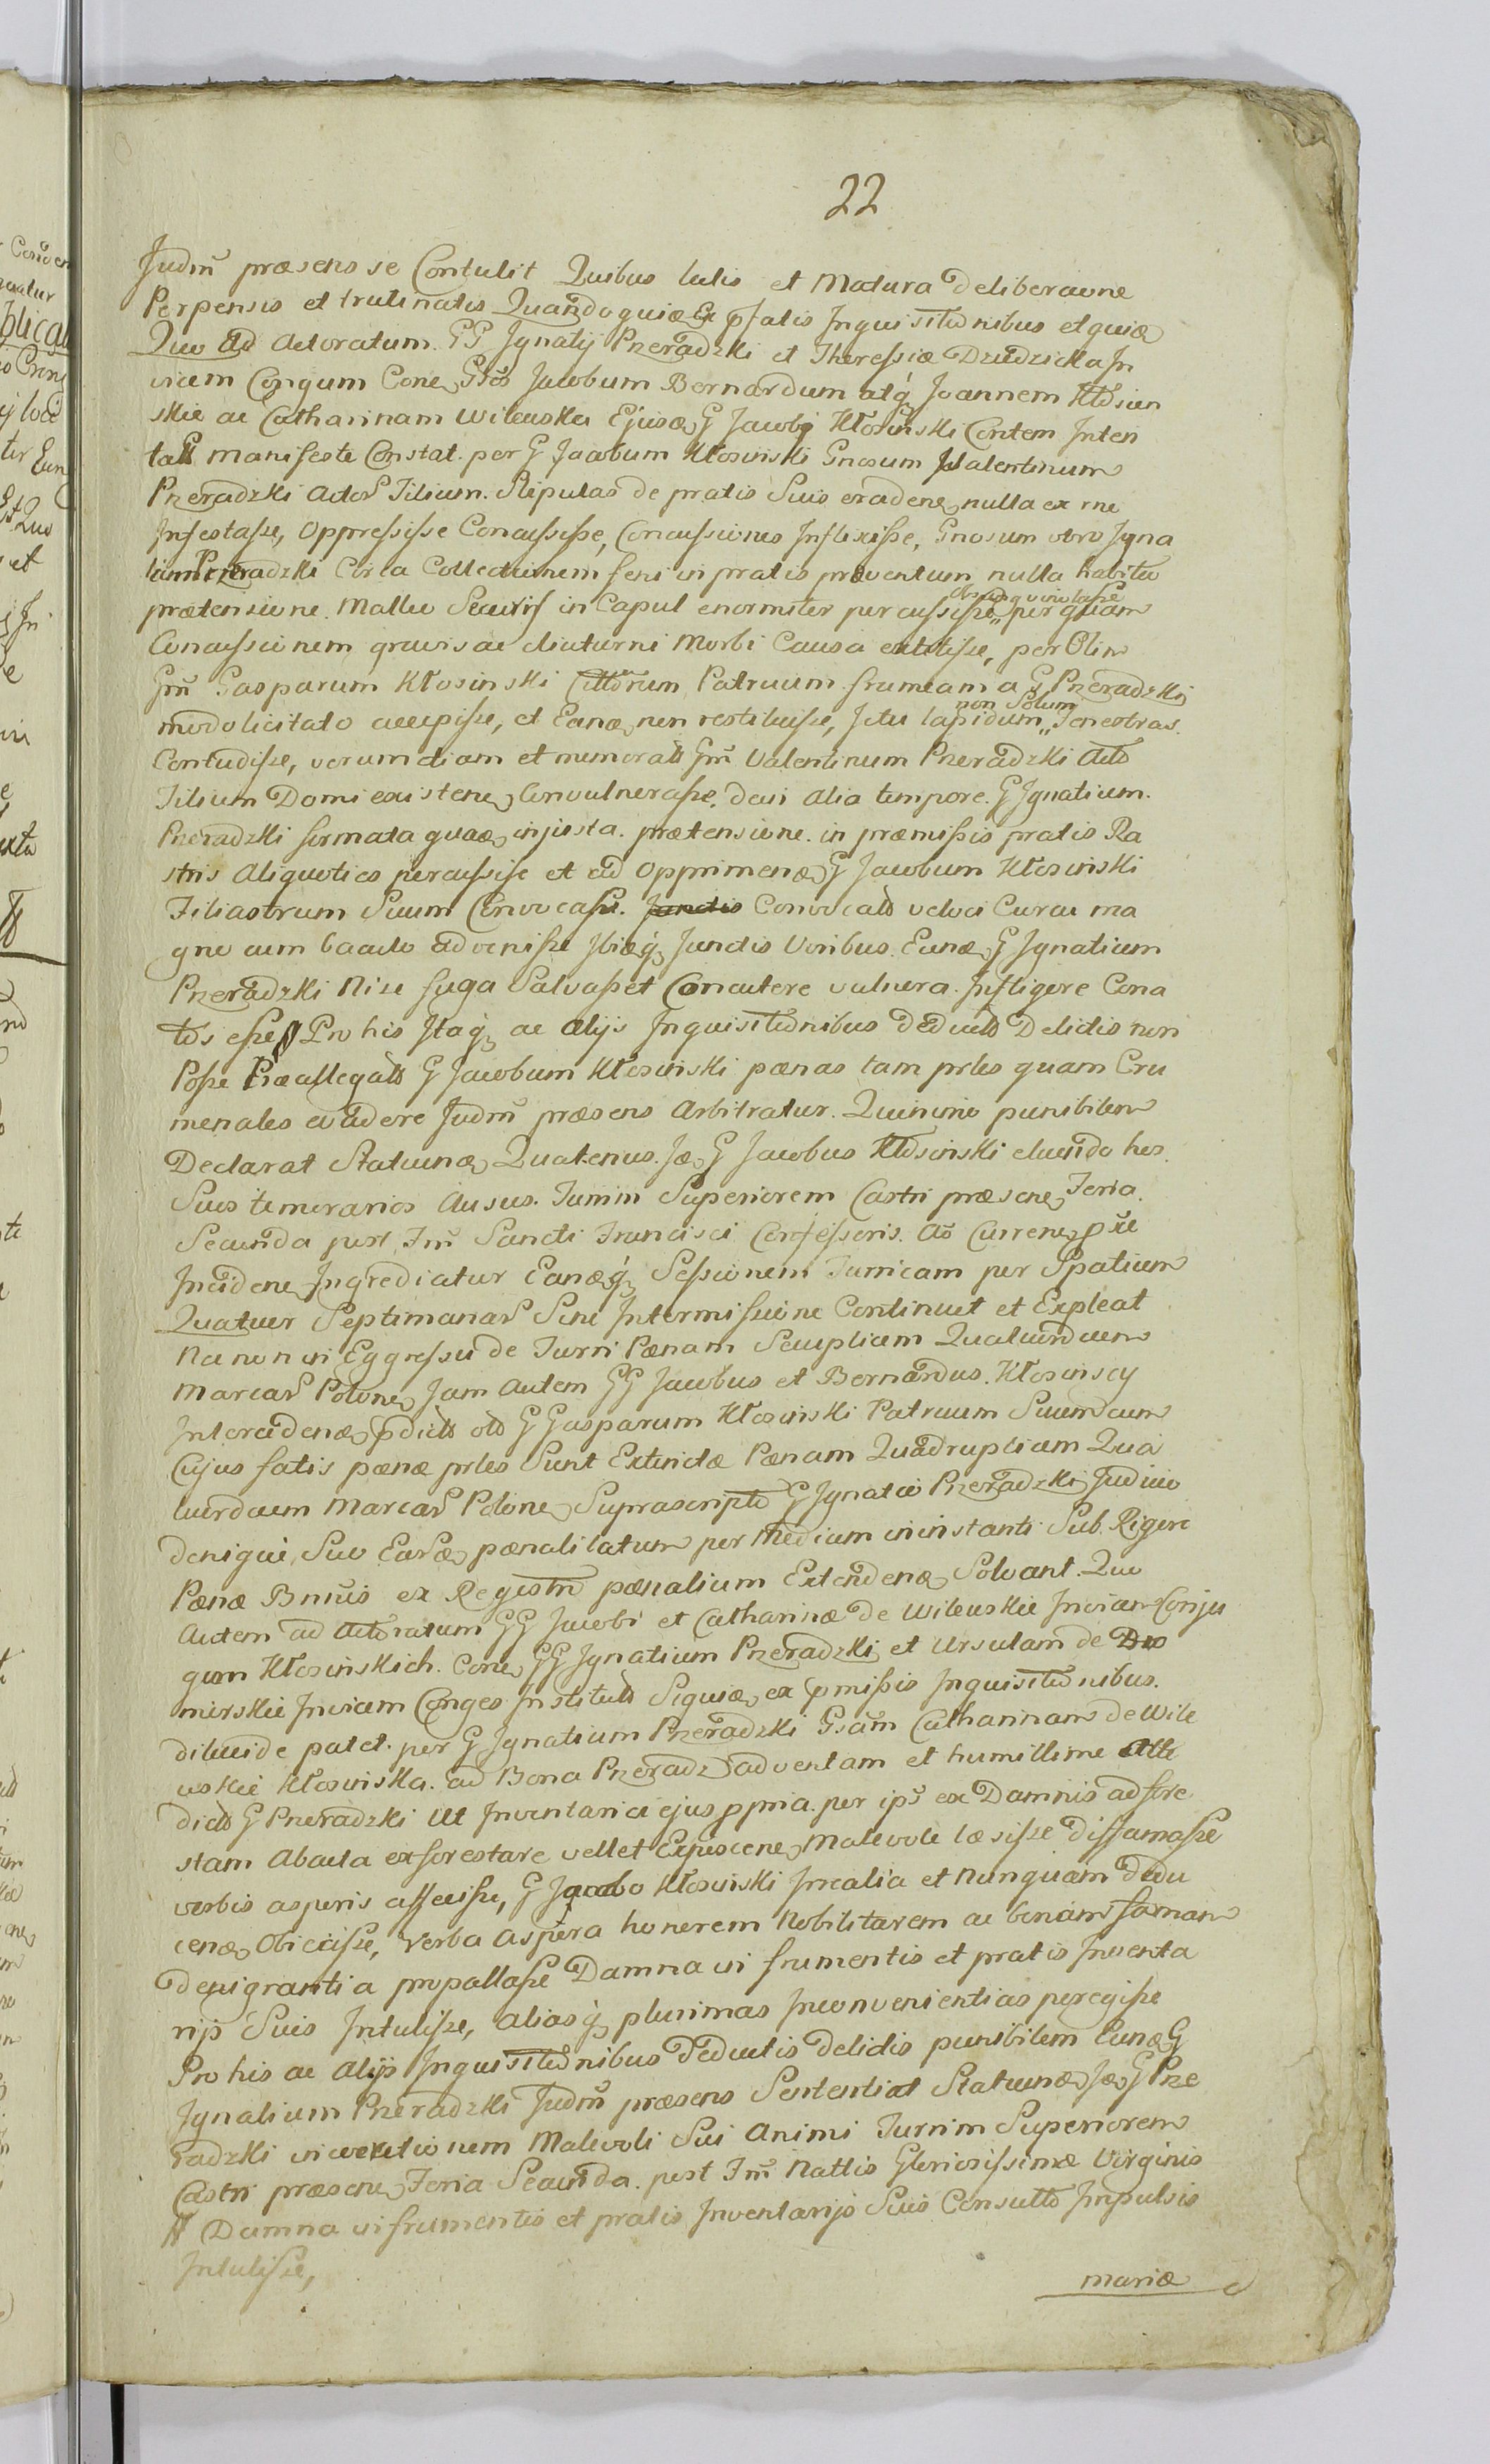 22
Judm̃ præsens se Contulit Quibus lulis et Matura deliberaone
Perpensis et trutinatis Quandoquidē Ex pfatis Inquisitionibus et quidē
Quo Ad Actoratum GG Ignatij Pzeradzki et Theressiæ Dzudzicka In
vicem Congum Cone Gs̃os Jacobum Bernardum atq̨ Joannem Kłosien
skie ac Catharinam Wilenska Ejusd G Jacobi Kłosinski Contem Inten
tatt manifeste Constat per G Jacobum Kłosinski Gnosum Valentinum
Pzeradzki Actor Filium Stipulas de pratis Suis eradene nulla ex rne
Infestasse, Oppressisse Concussisse, Concussiones Inflixisse, Gnosum vero Igna
tium Pzeradzki Circa Collectionem feni in pratis præventum nulla habita
prætensione Malleo Securis in Caput enormiter percussisse,, per quam
Concussionem gravis ac diuturni Morbi Causa extitisse, per Olim
Gm̃ Gasparum Kłosinski Cittorum Patruum frameam a G Pzeradzki
modo licitato accepisse, et Eand non restituisse, Ictu lapidum,, non Solum Fenestras
Contudisse, verum etiam et memoratt Gm̃ Valentinum Pzeradzki Acto
Filium Domi existene Convulnerasse, dein Alio tempore G Ignatium
Pzeradzki formata quad injusta prætensione in præmissis pratis Ra
stris Aliquoties percussisse et ad opprimend G Jacobum Kłosinski
Filiastrum Suum Convocasse. Junctis Convocato veloci Cursu ma
gno cum baculo advenisse Ibidq̨ Junctis Viribus Eund G Ignatium
Pzeradzki Nisi fuga Salvasset Concutere vulnera Infligere Cona
tos esse Pro his Itaq̨ ac alijs Inquisitionibus Deductis Delictis non
Posse Præallegatt G Jacobum Kłosinski pænas tam prles quam Cru
menales evadere Judm̃ præsens Arbitratur. Quinimo punibilem
Declarat Statuend Quatenus Jd G Jacobus Kłosinski eluendo hos
Suos temerarios Ausus Turrim Superiorem Castri præsene Feria
Secunda post Fm̃ Sancti Francisci Confessoris Ao Currene pxe
Incidene Ingrediatur Eandq̨ Sessionem Turricam per Spatium
Quatuor Septimanar Sine Intermissione Continuet et Expleat
Nec non in Eggressu de Turri Pænam Seuplicem Quatuordecem
Marcar Polone Jam Autem GG Jacobus et Bernardus Kłosinscy
Intercedend pdictt olo G Gasparum Kłosinski Patruum Suum cum
Cujus fatis pænæ prles Sunt Extinctæ Pænam Quadruplicam Qua
tuordecem Marcar Polone Suprascripto G Ignatio Pzeradzki Judicio
denique Suo Eard pænalitatum per Medium in instanti Sub Rigore
Pænæ Bnnis ex Registro pænalium Extendend Solvant. Quo
Autem ad Actoratum GG Jacobi et Catharinæ de Wilenskie Invicem Conju
gum Kłosinskich Cone GG Ignatium Pzeradzki et Ursulam de Do
mirskie Invicem Conges Institutt Siquidē ex pmissis Inquisitionibus
dilucide patet per G Ignatium Pzeradzki Gsam Catharinam de Wile
nskie Kłosinska ad Bona Pzeradz adventam et humillime Atte
dictt G Pzeradzki Ut Inventaria ejus ppria per ips ex Damnis ad fore
stam Abacta exforestare vellet Exposcene Malevole læsisse diffamasse
verbis asperis affecisse, G Jacobo Kłosinski Irrealia et Nunquam dedu
cend Obiecisse, Verba Aspera honorem Nobilitarem ac bonam famam
denigrantia propallasse Damna in frumentis et pratis Inventa
rijs Suis Intulisse, aliasq̨ plurimas Inconvenientias peregisse
Pro his ac Alijs Inquisitionibus deductis delictis punibilem Eund G
Ignatium Pzeradzki Judm̃ præsens Sententiat Statuend Jd G Pze
radzki in coercitionem Malevoli Sui Animi Turrim Superiorem
Castri præsene Feria Secunda post Fm̃ Nattis Gloriosissimæ Virginis
Damna in frumentis et pratis Inventarijs Suis Consulto Impulsis
Intulisse,
mariæ